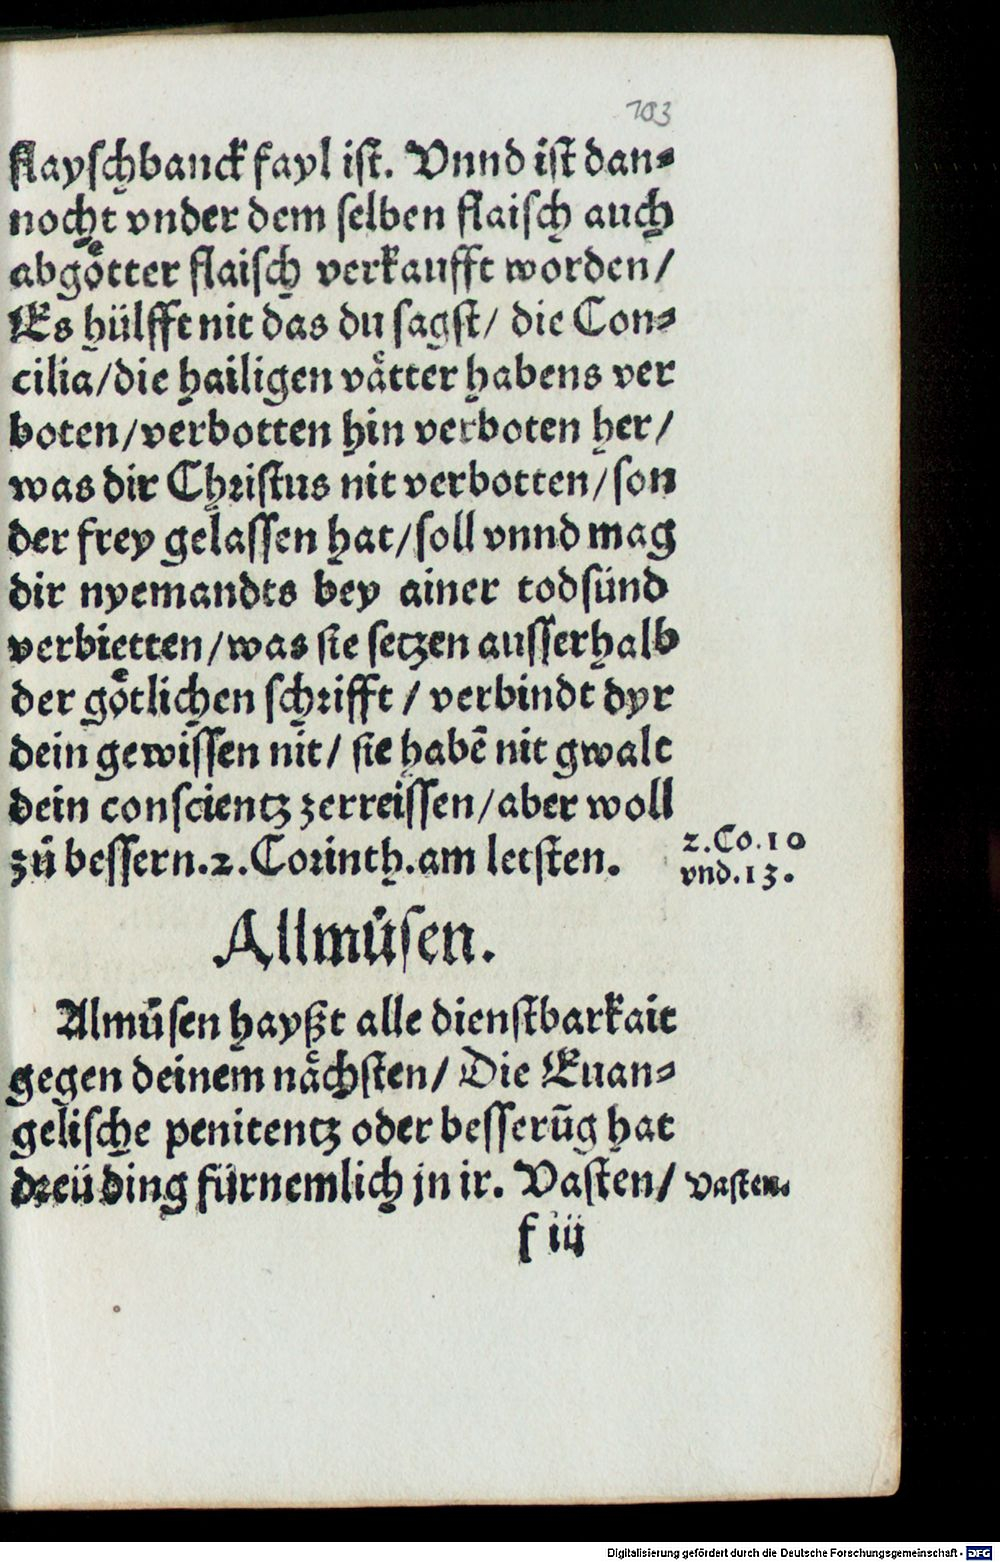 103
flayschbanck fayl ist. Vnnd ist dan⸗
nocht vnder dem selben flaisch auch
abgoͤtter flaisch verkaufft worden/
Es hülfft nit das du sagst/ die Con⸗
cilia/die hailigen vaͤtter habens ver
boten/verbotten hin verboten her/
was dir Christus nit verbotten/son
der frey gelassen hat/soll vnnd mag
dir nyemandts bey ainer todsünd
verbietten/was sie setzen ausserhalb
der goͤtlichen schrifft / verbindt dyr
dein gewissen nit/ sie habē nit gwalt
dein conscientz zerreissen/aber woll
zů bessern.2.Corinth.am letsten.
2.Co.10
vnd.13.
Allmůsen.
Almůsen hayßt alle dienstbarkait
gegen deinem naͤchsten/ Die Euan⸗
gelische penitentz oder besserūg hat
dreü ding fürnemlich jn ir. Vasten/
Vasten.
f iij
Digitalisierung gefördert durch die Deutsche Forschungsgemeinschaft - DFG